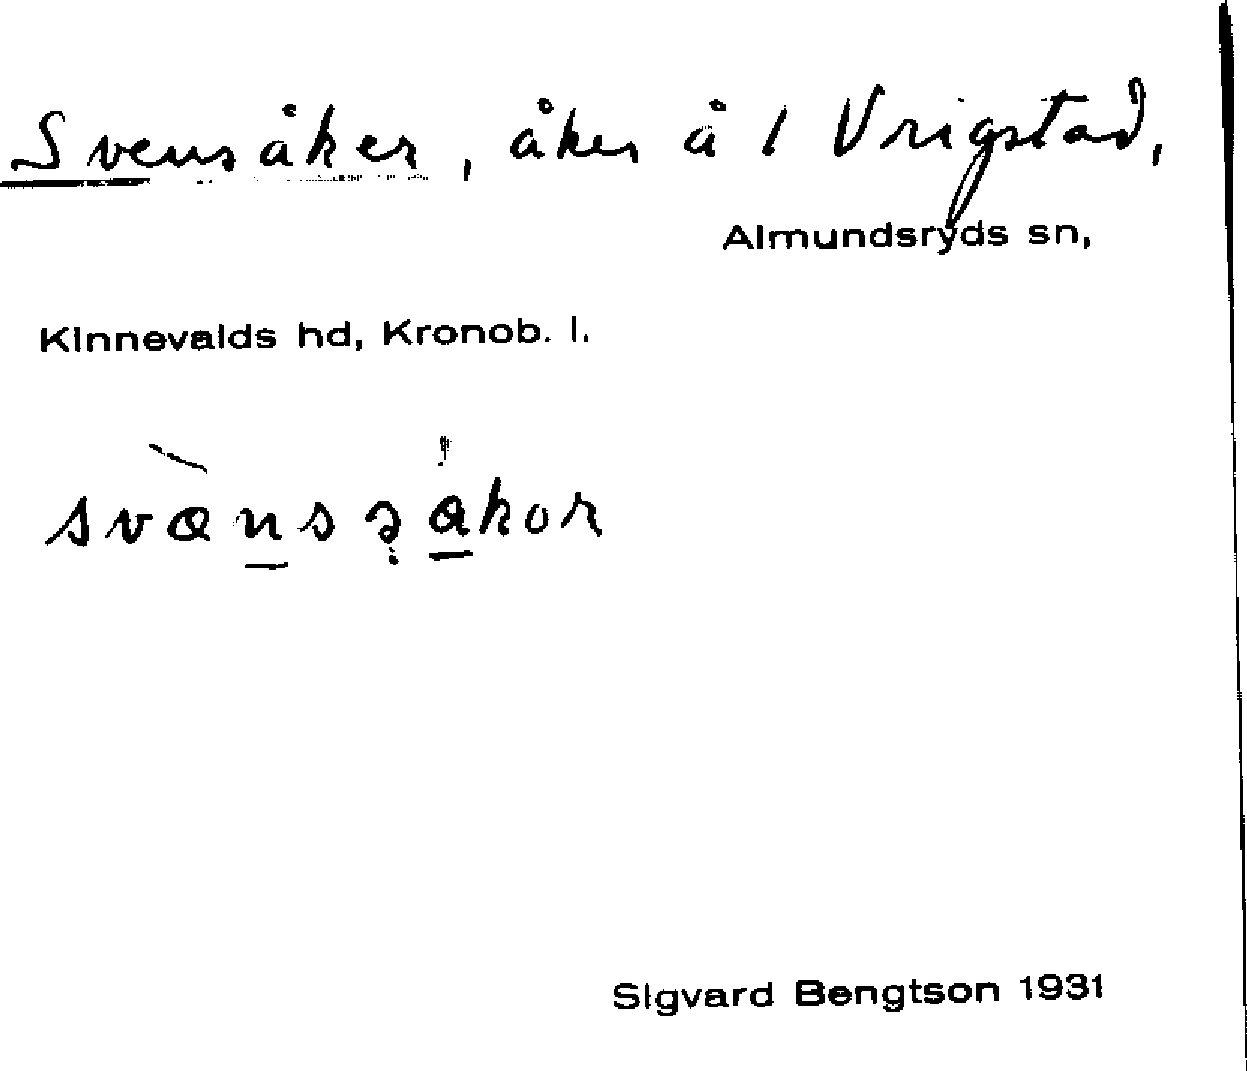 Svensåker, åker å 1 Vrigstad,
Almundsryds sn,
Kinnevalds hd, Kronob. l.
Sigvard Bengtson 1931